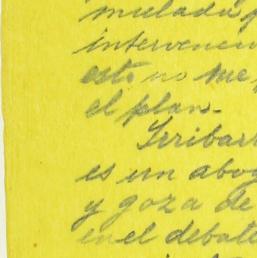 mulada
intervenen
esto no me
el plan.
Iribar
es un abog
y goza de
en el debate